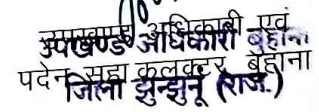 उपखण्ड अधिकारी एवं
उपखण्ड अधिकारी बुहाना
पदेन सहा कलक्टर बुहाना
जिला झुन्झुनू (राज.)